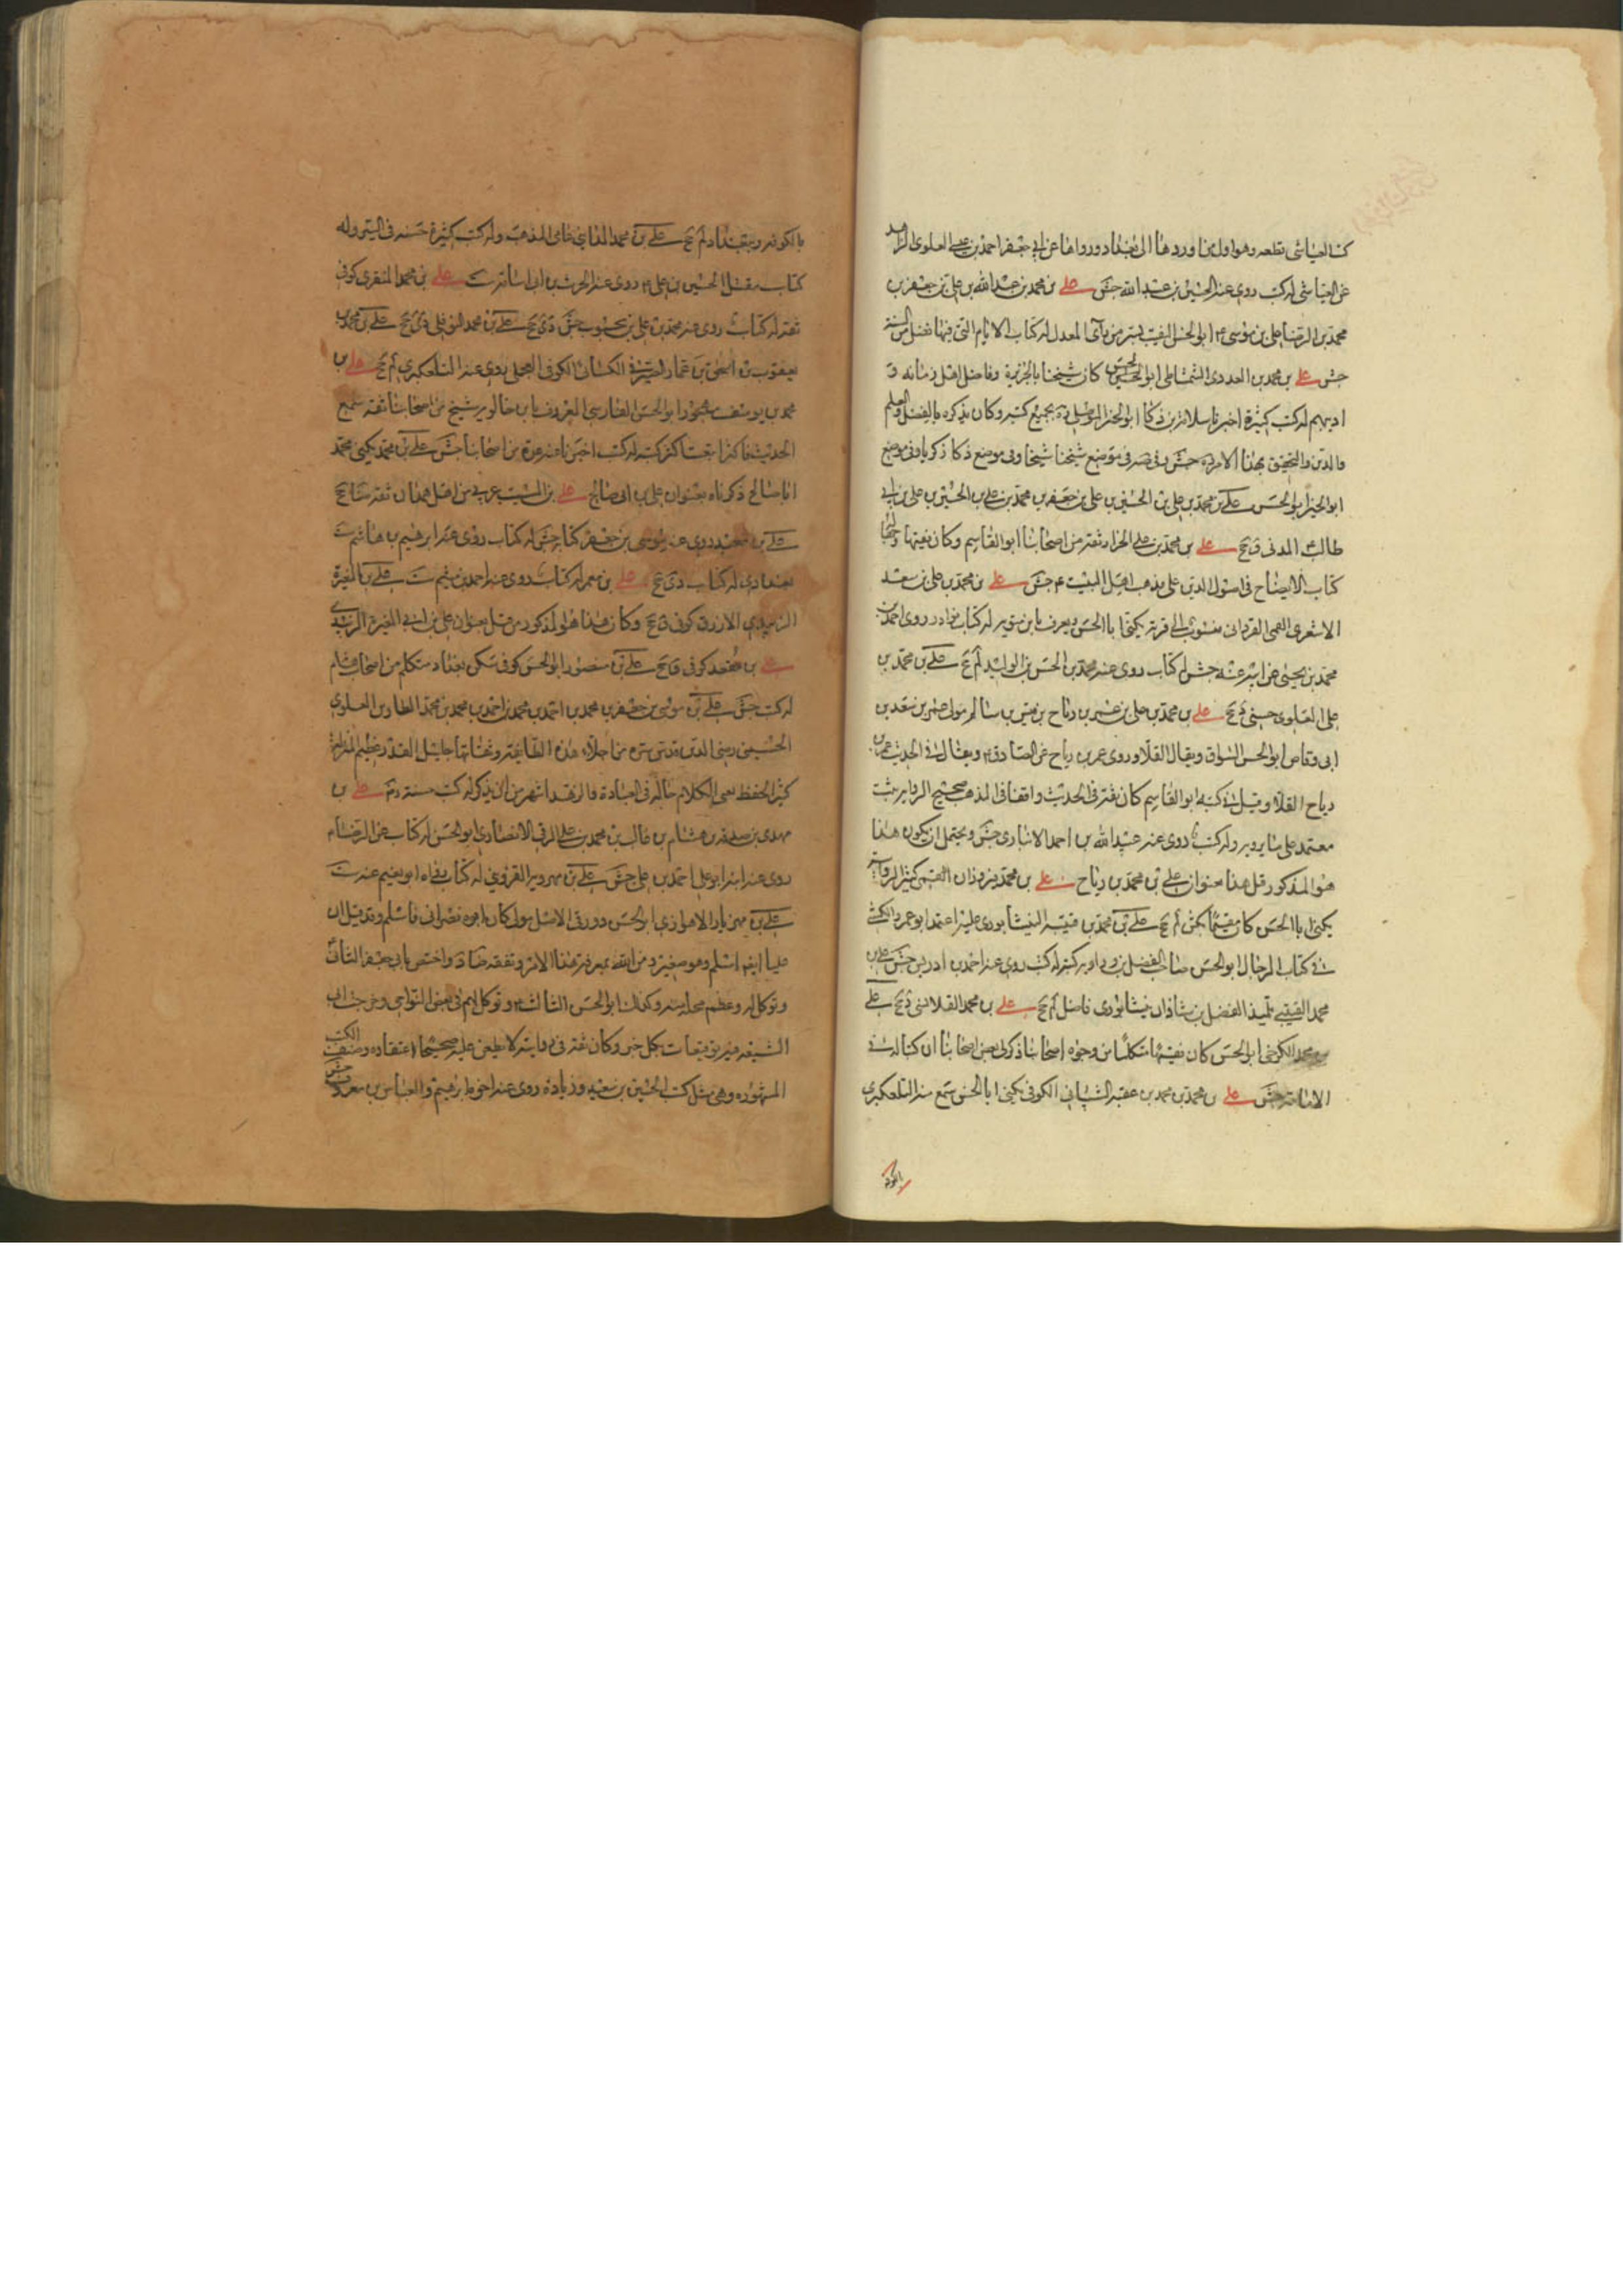 كتب العياشي قطعه وهو اول من اوردها الى بغداد ورواها عن ابي جعفر احمد بن علي العلوي الزاهد
عن العياشي له كتب روى عنه الحسين بن عبيد الله جش علي بن محمد بن عبد الله بن علي بن جعفر بن
محمد بن الرضا علي بن موسى ابو الحسن النقيب بسر من رأى المعدل له كتاب الايام التي فيها فضل من السنة
جش علي بن محمد بن العدوى الشمشاطي ابو الحسن كان شيخنا بالجزيرة وفاضل اهل زمانه و
اديبهم له كتب كثيرة اخبرنا سلامة بن ذكا ابو الخير الموصلي ره بجميع كتبه وكان يذكره بالفضل والعلم
والدين والتحقيق بهذا الامر ره جش وفي موضع شيخنا وفي موضع ذكا ذكريا وفي موضع
ابو الخير ابو الحسن علي بن محمد بن علي بن الحسين بن علي بن جعفر بن محمد بن علي بن الحسين بن علي بن ابي
طالب المدني ق جخ علي بن محمد بن علي الخزاز ثقة من اصحابنا ابو القاسم وكان فقيها وجها
كتاب الايضاح في اصول الدين على مذهب اهل البيت ع جش علي بن محمد بن علي بن سعد
الاشعري القمي القزداني منسوب الى قرية يكنى ابا الحسن ويعرف بابن متويه له كتاب نوادر روى احمد بن
محمد بن يحيى عن ابيه عنه جش له كتاب روى عنه محمد بن الحسن بن الوليد لم جخ علي بن محمد بن
علي العلوى حسني دى جخ علي بن محمد بن علي بن عمر بن رباح بن قيس بن سالم مولى عمر بن سعد بن
ابي وقاص ابو الحسن السواق ويقال القلا وروى عمر بن رباح عن الصادق ويقال في الحديث عمر بن
رباح القلا وقيل في كتبه ابو القاسم كان ثقة في الحديث واقفا في المذهب صحيح الرواية ثبت
معتمد على ما يرويه وله كتب روى عنه عبيد الله بن احمد الانبارى جش ويحتمل ان يكون هذا
هو المذكور قبل هذا بعنوان علي بن محمد بن رباح علي بن محمد بن فيروزان القمي كثير الرواية
يكنى ابا الحسن كان مقيما بكش لم جخ علي بن محمد بن قتيبة النيشابورى عليه اعتمد ابو عمرو الكشي
في كتاب الرجال ابو الحسن صاحب الفضل بن شاذان وراوية كتبه له كتب روى عنه احمد بن ادريس جش علي بن
محمد القتيبي تلميذ الفضل بن شاذان نيشابورى فاضل لم جخ علي بن محمد القلانسي دى جخ علي
بن محمد الكرخي ابو الحسن كان فقيها متكلما من وجوه اصحابنا ذكر لي بعض اصحابنا ان كتابا له في
الامامة جش علي بن محمد بن محمد بن عقبة الشيباني الكوفي يكنى ابا الحسن سمع منه التلعكبرى
بالكوفة
بالكوفة وببغداد لم جخ علي بن محمد المدايني عامي المذهب وله كتب كثيرة حسنة في السير وله
كتاب مقتل الحسين بن علي روى عنه الحرث بن ابي اسامة ست علي بن محمد المنقرى كوفي
ثقة له كتاب روى عنه محمد بن علي بن محبوب جش دى جخ علي بن محمد النوفلي دى جخ علي بن محمد بن
يعقوب بن اسحق بن عمار الصيرفي الكسائي الكوفي العجلي روى عنه التلعكبرى لم جخ علي بن
محمد بن يوسف بن مهجور ابو الحسن الفارسي المعروف بابن خالويه شيخ من اصحابنا ثقة سمع
الحديث فاكثر ابتعت اكثر كتبه له كتب اخبرنا عنه عدة من اصحابنا جش علي بن محمد يكنى محمد
ابا صالح ذكرناه بعنوان علي بن ابي صالح علي بن المسيب عربي من اهل همدان ثقة ضا جخ
علي بن معبد روى عنه موسى بن جعفر كتابه جش له كتاب روى عنه ابراهيم بن هاشم ست
بغدادي له كتاب دى جخ علي بن معمر له كتاب روى عنه احمد بن ميثم ست علي بن المغيرة
الزبيدي الازرق كوفي ق جخ وكان هذا هو المذكور من قبل بعنوان علي بن ابي المغيرة الزبيدي
علي بن مقعد كوفي ق جخ علي بن منصور ابو الحسن كوفي سكن بغداد متكلم من اصحاب هشام
له كتب جش علي بن موسى بن جعفر بن محمد بن احمد بن محمد بن احمد بن محمد بن محمد الطاوس العلوى
الحسيني رضي الدين قدس سره من اجلاء هذه الطائفة وثقاتها جليل القدر عظيم المنزلة
كثير الحفظ نقي الكلام حاله في العبادة والزهد اشهر من ان يذكر له كتب حسنة ره علي بن
مهدى بن صدقة بن هشام بن غالب بن محمد بن علي الرقي الانصارى ابو الحسن له كتاب عن الرضا
روى عنه ابنه ابو علي احمد بن علي جش علي بن مهرويه القزويني له كتاب رواه ابو نعيم عنه ست
علي بن مهزيار الاهوازى ابو الحسن دورقي الاصل مولى كان ابوه نصراني فاسلم وقد قيل ان
عليا ايضا اسلم وهو صغير ومن الله بمعرفة هذا الامر وتفقه ضا د واختص بابي جعفر الثاني
وتوكل له وعظم محله منه وكذلك ابو الحسن الثالث وتوكل لهم في بعض النواحي وخرجت الى
الشيعة فيه توقيعات بكل خير وكان ثقة في روايته لا يطعن عليه صحيحا اعتقاده وصنف الكتب
المشهورة وهي مثل كتب الحسين بن سعيد وزيادة روى عنه اخوه ابراهيم والعباس بن معروف جش